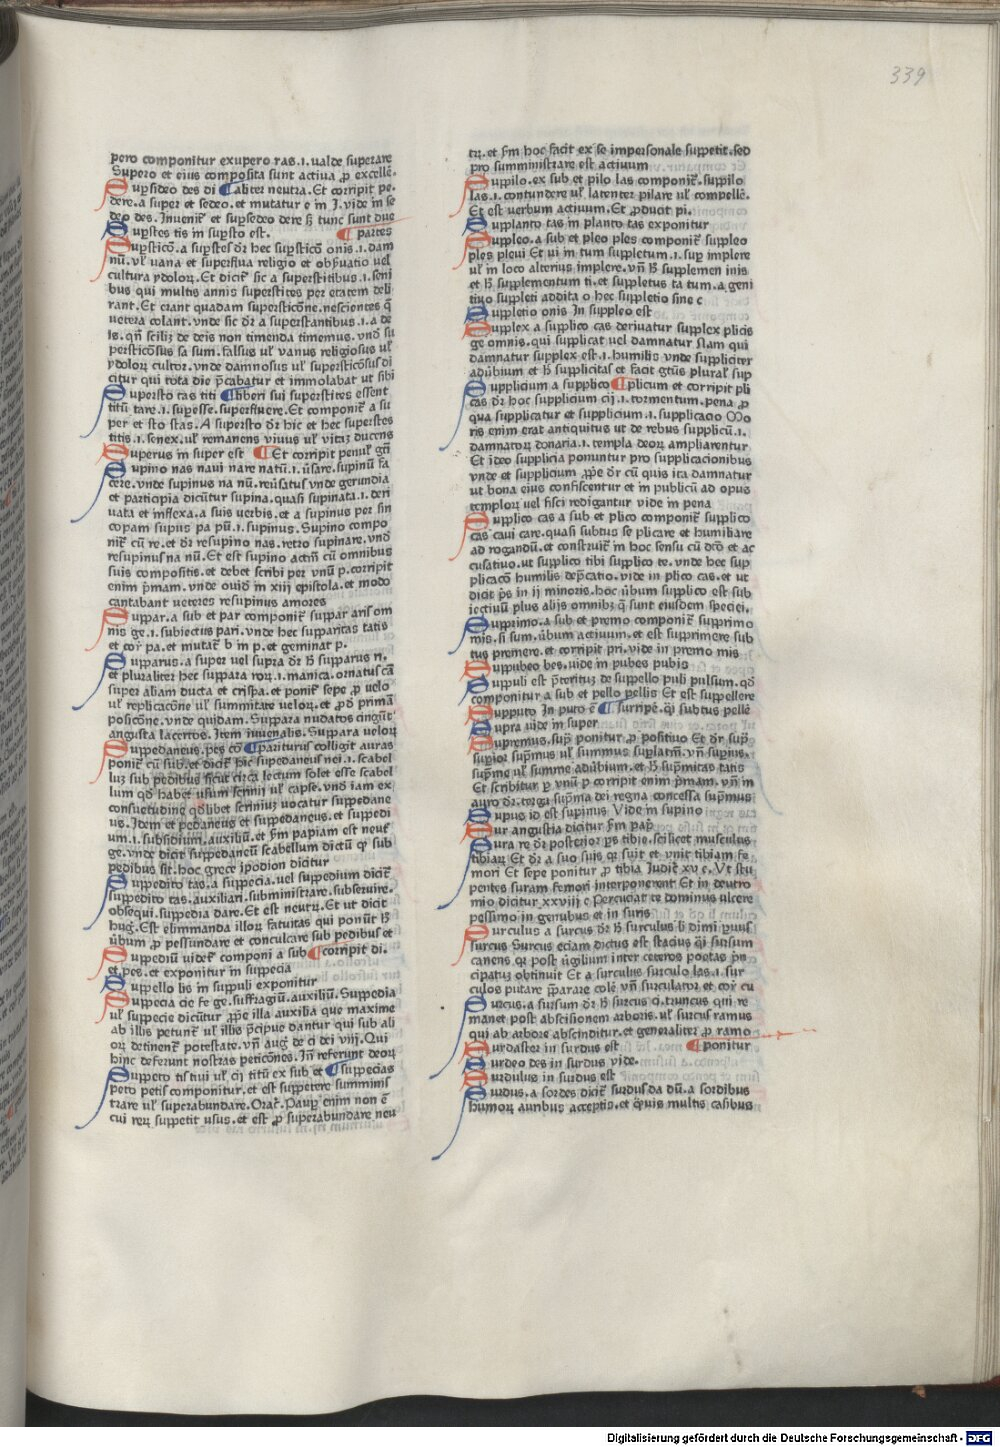 339
pero componitur exupero ras .i. ualde superare
Supero et eius composita sunt actiua ꝓ excellē.
Supsideo des di ¶ abiter neutra. Et corripit pe-
dere. a super et sedeo. et mutatur e in I. vide in se
deo des. Inuenit᷑ et supsedeo dere sꝫ tunc sunt due
Supstes tis in supsto est. ¶ partes
bus qui multis annis superstites per etatem deli
rant. Et erant quadam supersticōne. nescientes q̄
uetera colant. vnde sic dr̄ a superstantibus .i. a de
is. qn̄ scilicꝫ de deis non timenda timemus. vnd̄ su
persticōsus sa sum. falsus ul᷑ vanus religiosus ul᷑
ydolorꝝ cultor. vnde damnosus ul᷑ supersticōsus di
citur qui tota die p̄cabatur et immolabat ut sibi
Supersto tas titi ¶ liberi sui superstites essent
titū tare .i. supesse. superfluere. Et componit᷑ a su
per et sto stas. A supersto dr̄ hic et hec superstes
titis .i. senex. ul᷑ remanens viuus ul᷑ vitaꝫ ducens
Superus in super est ¶ Et corripit penul᷑ gtī
Supino nas naui nare natū .i. ūsare. supinū fa
cere. vnde supinus na nū. reūsatus vnde gerundia
et participia dicūtur supina. quasi supinata .i. deri
uata et inflexa. a suis uerbis. et a supinus per sin
copam supus pa pū .i. supinus. Supino compo
nit᷑ cū re. et dr̄ resupino nas. retro supinare. vnd̄
resupinus na nū. Et est supino actm̄ cū omnibus
suis compositis. et debet scribi per vnū p. corripit
enim p̄mam. vnde ouid̄ in xiij epistola. et modo
cantabant ueteres resupinus amores
Suppar. a sub et par componit᷑ suppar aris om
nis ge .i. subiectus pari. vnde hec supparitas tatis
et cor̄ pa. et mutat᷑ b in p. et geminat p.
Supparus. a super uel supra dr̄ hͦ supparus ri.
et pluraliter hec suppara rorꝝ .i. manica. ornatus cā
super aliam ducta et crispa. et ponit᷑ sepe ꝓ uelo
ul᷑ replicacōne ul᷑ summitate uelorꝝ. et ꝓ primā
posicōne. vnde quidam. Suppara nudatos cingūt᷑
angusta lacertos. Item iuuenalis. Suppara uelorꝝ
Suppedaneus. ptꝫ cō ¶ pariturus colligit auras
ponit᷑ cū sub. et dicit᷑ hic supedaneus nei .i. scabel
luꝫ sub pedibus sicut circa lectum solet esse scabel
lum qd̄ habet usum scrinij ul᷑ capse. vnd̄ iam ex
consuetudine qd̄libet scriniuꝫ uocatur suppedane
us. Idem et pedaneus et suppedaneus. et suppedi
um .i. subsidium. auxibū. et fm̄ papiam est neut᷑
ge. vnde dicit suppedaneū scabellum dictū ꝙ sub
pedibus sit. hoc grece ipodion dicitur
Suppedito tas. a suppecia. uel suppedium dicit᷑
suppedito tas. auxiliari. subministrare. subseruire.
obsequi. suppedia dare. Et est neutrꝝ. Et ut dicit
hug. Est elimmanda illorꝝ fatuitas qui ponūt hͦ
ūbum ꝓ pessundare et conculcare sub pedibus et
Suppediū videt᷑ componi a sub ¶ corripit di.
et pes. et exponitur in suppecia
Suppello lis in suppuli exponitur
Suppecia cie fe ge. suffragiū. auxiliū. Suppedia
ul᷑ suppecie dicūtur ꝓpe illa auxilia que maxime
ab illis petunt᷑ ul᷑ illis p̄cipue dantur qui sub ali
orꝝ detinent᷑ potestate. vn̄ aug᷑ de ci dei viij. Qui
hinc deferunt nostras peticōnes. In̄ referunt deorꝝ
Suppeto tis tiui ul᷑ cij titū ex sub et ¶ suppecias
peto petis componitur. et est suppetere summinis
trare ul᷑ superabundare. Orac᷑. Paup̱ enim non ē
cui rerꝝ suppetit usus. et est ꝓ superabundare neu
trꝝ. et fm̄ hoc facit ex se impersonale suppetit. sed
pro sumministrare est actiuum
Suppilo. ex sub et pilo las componit᷑. suppilo
las .i. contundere ul᷑ latenter pilare ul᷑ compellē.
Et est uerbum actiuum. Et ꝓducit pi.
Supplanto tas in planto tas exponitur
Suppleo. a sub et pleo ples componit᷑ suppleo
ples pleui Et ui in tum suppletum .i. sup̱ implere
ul᷑ in loco alterius implere. vn̄ hͦ supplemen inis
et hͦ supplementum ti. et suppletus ta tum. a geni
tiuo suppleti addita o hec suppletio sine c
Suppletio onis In suppleo est
Supplex a supplico cas deriuatur supplex plicis
ge omnis. qui supplicat uel damnatur nam qui
damnatur supplex est .i. humilis vnde suppliciter
adūbium et hͦ supplicitas et facit gtūs plural᷑ sup
Supplicium a supplico ¶ plicum et corripit pli
cas dr̄ hoc supplicium cij .i. tormentum. pena ꝓ
qua supplicatur et supplicium .i. supplicacio Mo
ris enim erat antiquitus ut de rebus supplicū .i.
damnatorꝝ donaria .i. templa deorꝝ ampliarentur
Et ideo supplicia ponuntur pro supplicacionibus
vnde et supplicium ꝓpe dr̄ cū quis ita damnatur
ut bona eius confiscentur et in publicū ad opus
templorꝝ uel fisci redigantur vide in pena
Supplico cas a sub et plico componit᷑ supplico
cas caui care. quasi subtus se plicare et humiliare
ad rogandū. et construit᷑ in hoc sensu cū dtō et ac
cusatiuo. ut supplico tibi supplico te. vnde hec sup
plicacō humilis dep̄catio. vide in plico cas. et ut
dicit p̄s in ij minoris. hoc ūbum supplico est sub
iectiuū plus alijs omnibꝫ q̄ sunt eiusdem speciei.
Supprimo. a sub et premo componit᷑ supprimo
mis. si sum. ūbum actiuum. et est supprimere sub
tus premere. et corripit pri. vide in premo mis
Suppubeo bes. vide in pubes pubis
Suppuli est p̄teritūꝫ de suppello puli pulsum. qd̄
componitur a sub et pello pellis Et est suppellere
Supputo In puto ē ¶ surripē. q̄i subtus pellē
Supra vide in super
Supremus. sup̱ ponitur ꝓ positiuo Et dr̄ sup̱.
sup̱ior sup̄mus ul᷑ summus sup̱latm̄. vn̄ sup̱ius.
sup̄me ul᷑ summe adūbium. et hͦ sup̄mitas tatis
Et scribitur ꝑ vnū p corripit enim p̄mam. vn̄ in
auro dr̄. terga sup̄ma dei regna concessa sup̄mus
Supus id est supinus Vide in supino
Sur angustia dicitur fm̄ pap̄
Sura re dr̄ posterior ꝑs tibie. scilicet musculus
tibiarꝝ Et dr̄ a suo suis. qꝛ suit et vnit tibiam fe
mori Et sepe ponitur ꝓ tibia Iudic᷑ xv c. Vt stu
pentes suram femori interponerent Et in deutro
mio dicitur xxviij c Percuciat te dominus ulcere
pessimo in genubus et in suris
Surculus a surcus dr̄ hͦ surculus li dimi ꝑuus
surcus Surcus eciam dictus est stacius q̄i sursum
canens qꝛ post ūgilium inter ceteros poetas p̄n
cipatuꝫ obtinuit Et a surculus surculo las .i. sur
culos putare p̄parare colē vn̄ surculator et cor̄ cu
Surcus. a sursum dr̄ hͦ surcus ci. truncus qui re
manet post abscisionem arboris. ul᷑ surcus ramus
qui ab arbore abscinditur. et generaliter ꝓ ramo
Surdaster in surdus est ¶ ponitur
Surdeo des in surdus vide.
Surdulus in surdus est
Surdus. a sordes dicit᷑ surdus da dū. a sordibus
humorꝝ auribus acceptis. et quis multis casibus
Digitalisierung gefördert durch die Deutsche Forschungsgemeinschaft - DFG